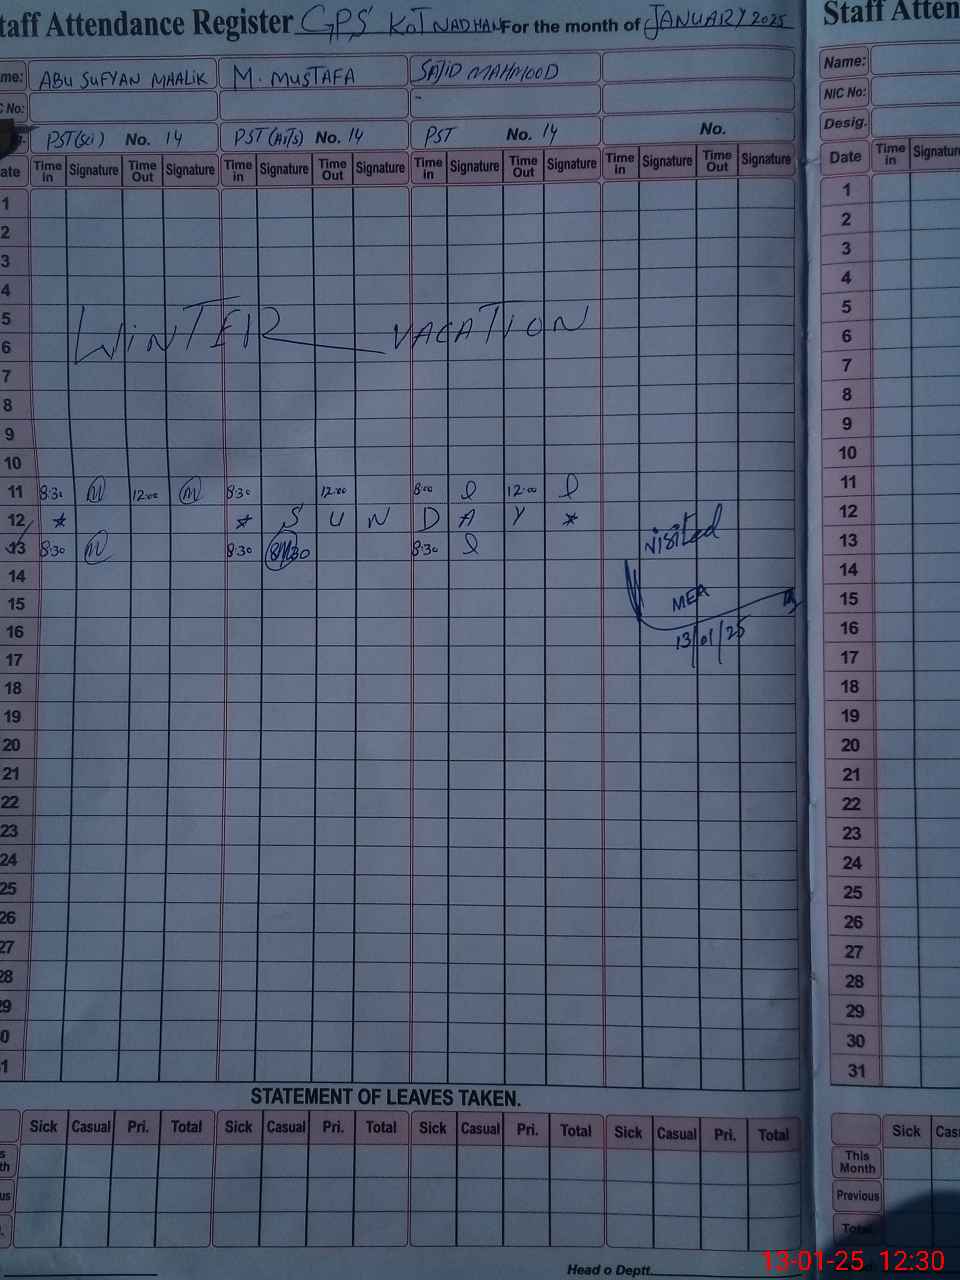 taff Attendance Register GPS KOT NADHAN For the month of JANUARY 2025 Staff Atten
me: ABU SUFYAN MAALIK M. MUSTAFA SAJID MAHMOOD Name:
C No: NIC No:
PST(Sci) No. 14 PST(Arts) No. 14 PST No. 14 No. Desig.
ate Time in Signature Time Out Signature Time in Signature Time Out Signature Time in Signature Time Out Signature Time in Signature Time Out Signature Date Time in Signature
1 1
2 2
3 3
4 4
5 5
WINTER VACATION
6 6
7 7
8 8
9 9
10 10
11 8:30 12:00 8:30 12:00 8:00 12:00 11
12 * * S U N D A Y * 12
13 8:30 8:30 8:30 visited 13
14 14
15 MEA 15
16 13/01/25 16
17 17
18 18
19 19
20 20
21 21
22 22
23 23
24 24
25 25
26 26
27 27
28 28
29 29
0 30
1 31
STATEMENT OF LEAVES TAKEN.
Sick Casual Pri. Total Sick Casual Pri. Total Sick Casual Pri. Total Sick Casual Pri. Total Sick Cas
s th This Month
us Previous
Total
Head o Deptt.
13-01-25 12:30